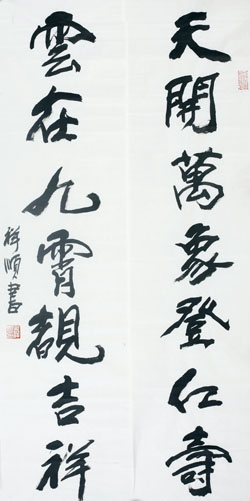 天開萬象登仁壽
雲在九霄覩吉祥
祥順書